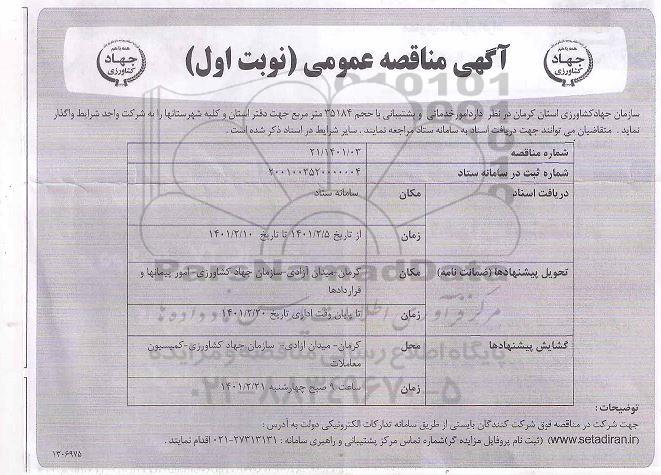 آگهی مناقصه عمومی (نوبت اول)
همه با هم
جهاد
کشاورزی
همه با هم
جهاد
کشاورزی
سازمان جهادکشاورزی استان کرمان در نظر دارد امور خدماتی و پشتیبانی با حجم ۳۵۱۸۴ متر مربع جهت دفتر استان و کلیه شهرستانها را به شرکت واجد شرایط واگذار
نماید . متقاضیان می توانند جهت دریافت اسناد به سامانه ستاد مراجعه نمایند . سایر شرایط در اسناد ذکر شده است .
شماره مناقصه ۲۱/۱۴۰۱/۰۳
شماره ثبت در سامانه ستاد ۲۰۰۱۰۰۳۵۲۰۰۰۰۰۰۴
دریافت اسناد مکان سامانه ستاد
زمان از تاریخ ۱۴۰۱/۲/۵ تا تاریخ ۱۴۰۱/۲/۱۰
تحویل پیشنهادها (ضمانت نامه) مکان کرمان-میدان آزادی-سازمان جهاد کشاورزی-امور پیمانها و
قراردادها
زمان تا پایان وقت اداری تاریخ ۱۴۰۱/۲/۲۰
گشایش پیشنهادها محل کرمان- میدان آزادی- سازمان جهاد کشاورزی-کمیسیون
معاملات
زمان ساعت ۹ صبح چهارشنبه ۱۴۰۱/۲/۲۱
توضیحات :
جهت شرکت در مناقصه فوق شرکت کنندگان بایستی از طریق سامانه تدارکات الکترونیکی دولت به آدرس :
(www.setadiran.ir) (ثبت نام پروفایل مزایده گر)شماره تماس مرکز پشتیبانی و راهبری سامانه : ۲۷۳۱۳۱۳۱-۰۲۱ اقدام نمایند .
۱۳۰۶۹۷۵